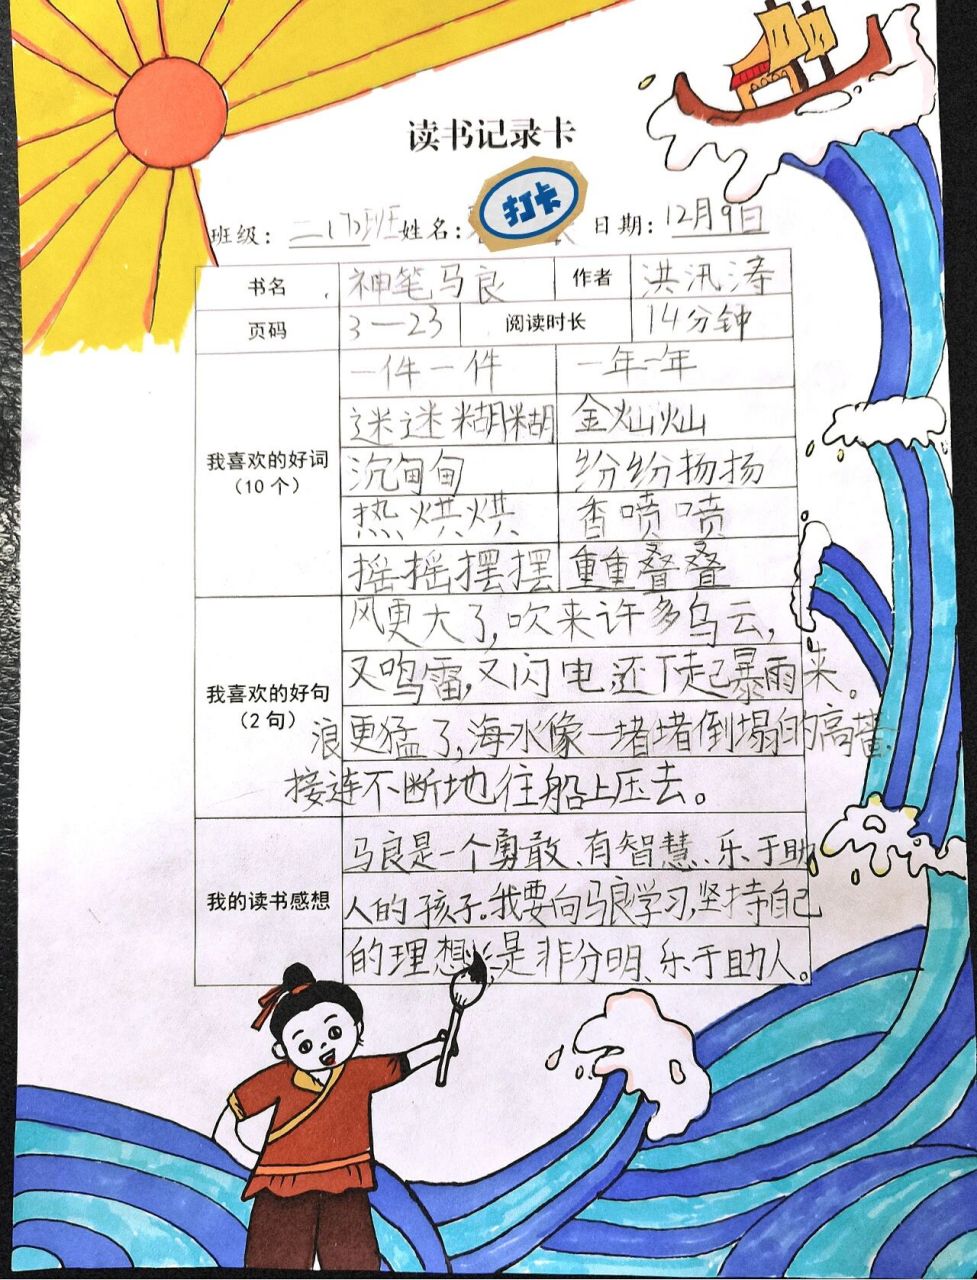 读书记录卡
打卡
班级：二（7）班 姓名： 日期：12月9日
书名 神笔马良 作者 洪汛涛
页码 3—23 阅读时长 14分钟
一件一件 一年一年
迷迷糊糊 金灿灿
我喜欢的好词
（10个）
沉甸甸 纷纷扬扬
热烘烘 香喷喷
摇摇摆摆 重重叠叠
风更大了，吹来许多乌云，
又鸣雷，又闪电，还下起暴雨来。
我喜欢的好句
（2句）
浪更猛了，海水像一堵堵倒塌的高墙，
接连不断地往船上压去。
马良是一个勇敢、有智慧、乐于助
我的读书感想
人的孩子。我要向马良学习，坚持自己
的理想，是非分明、乐于助人。